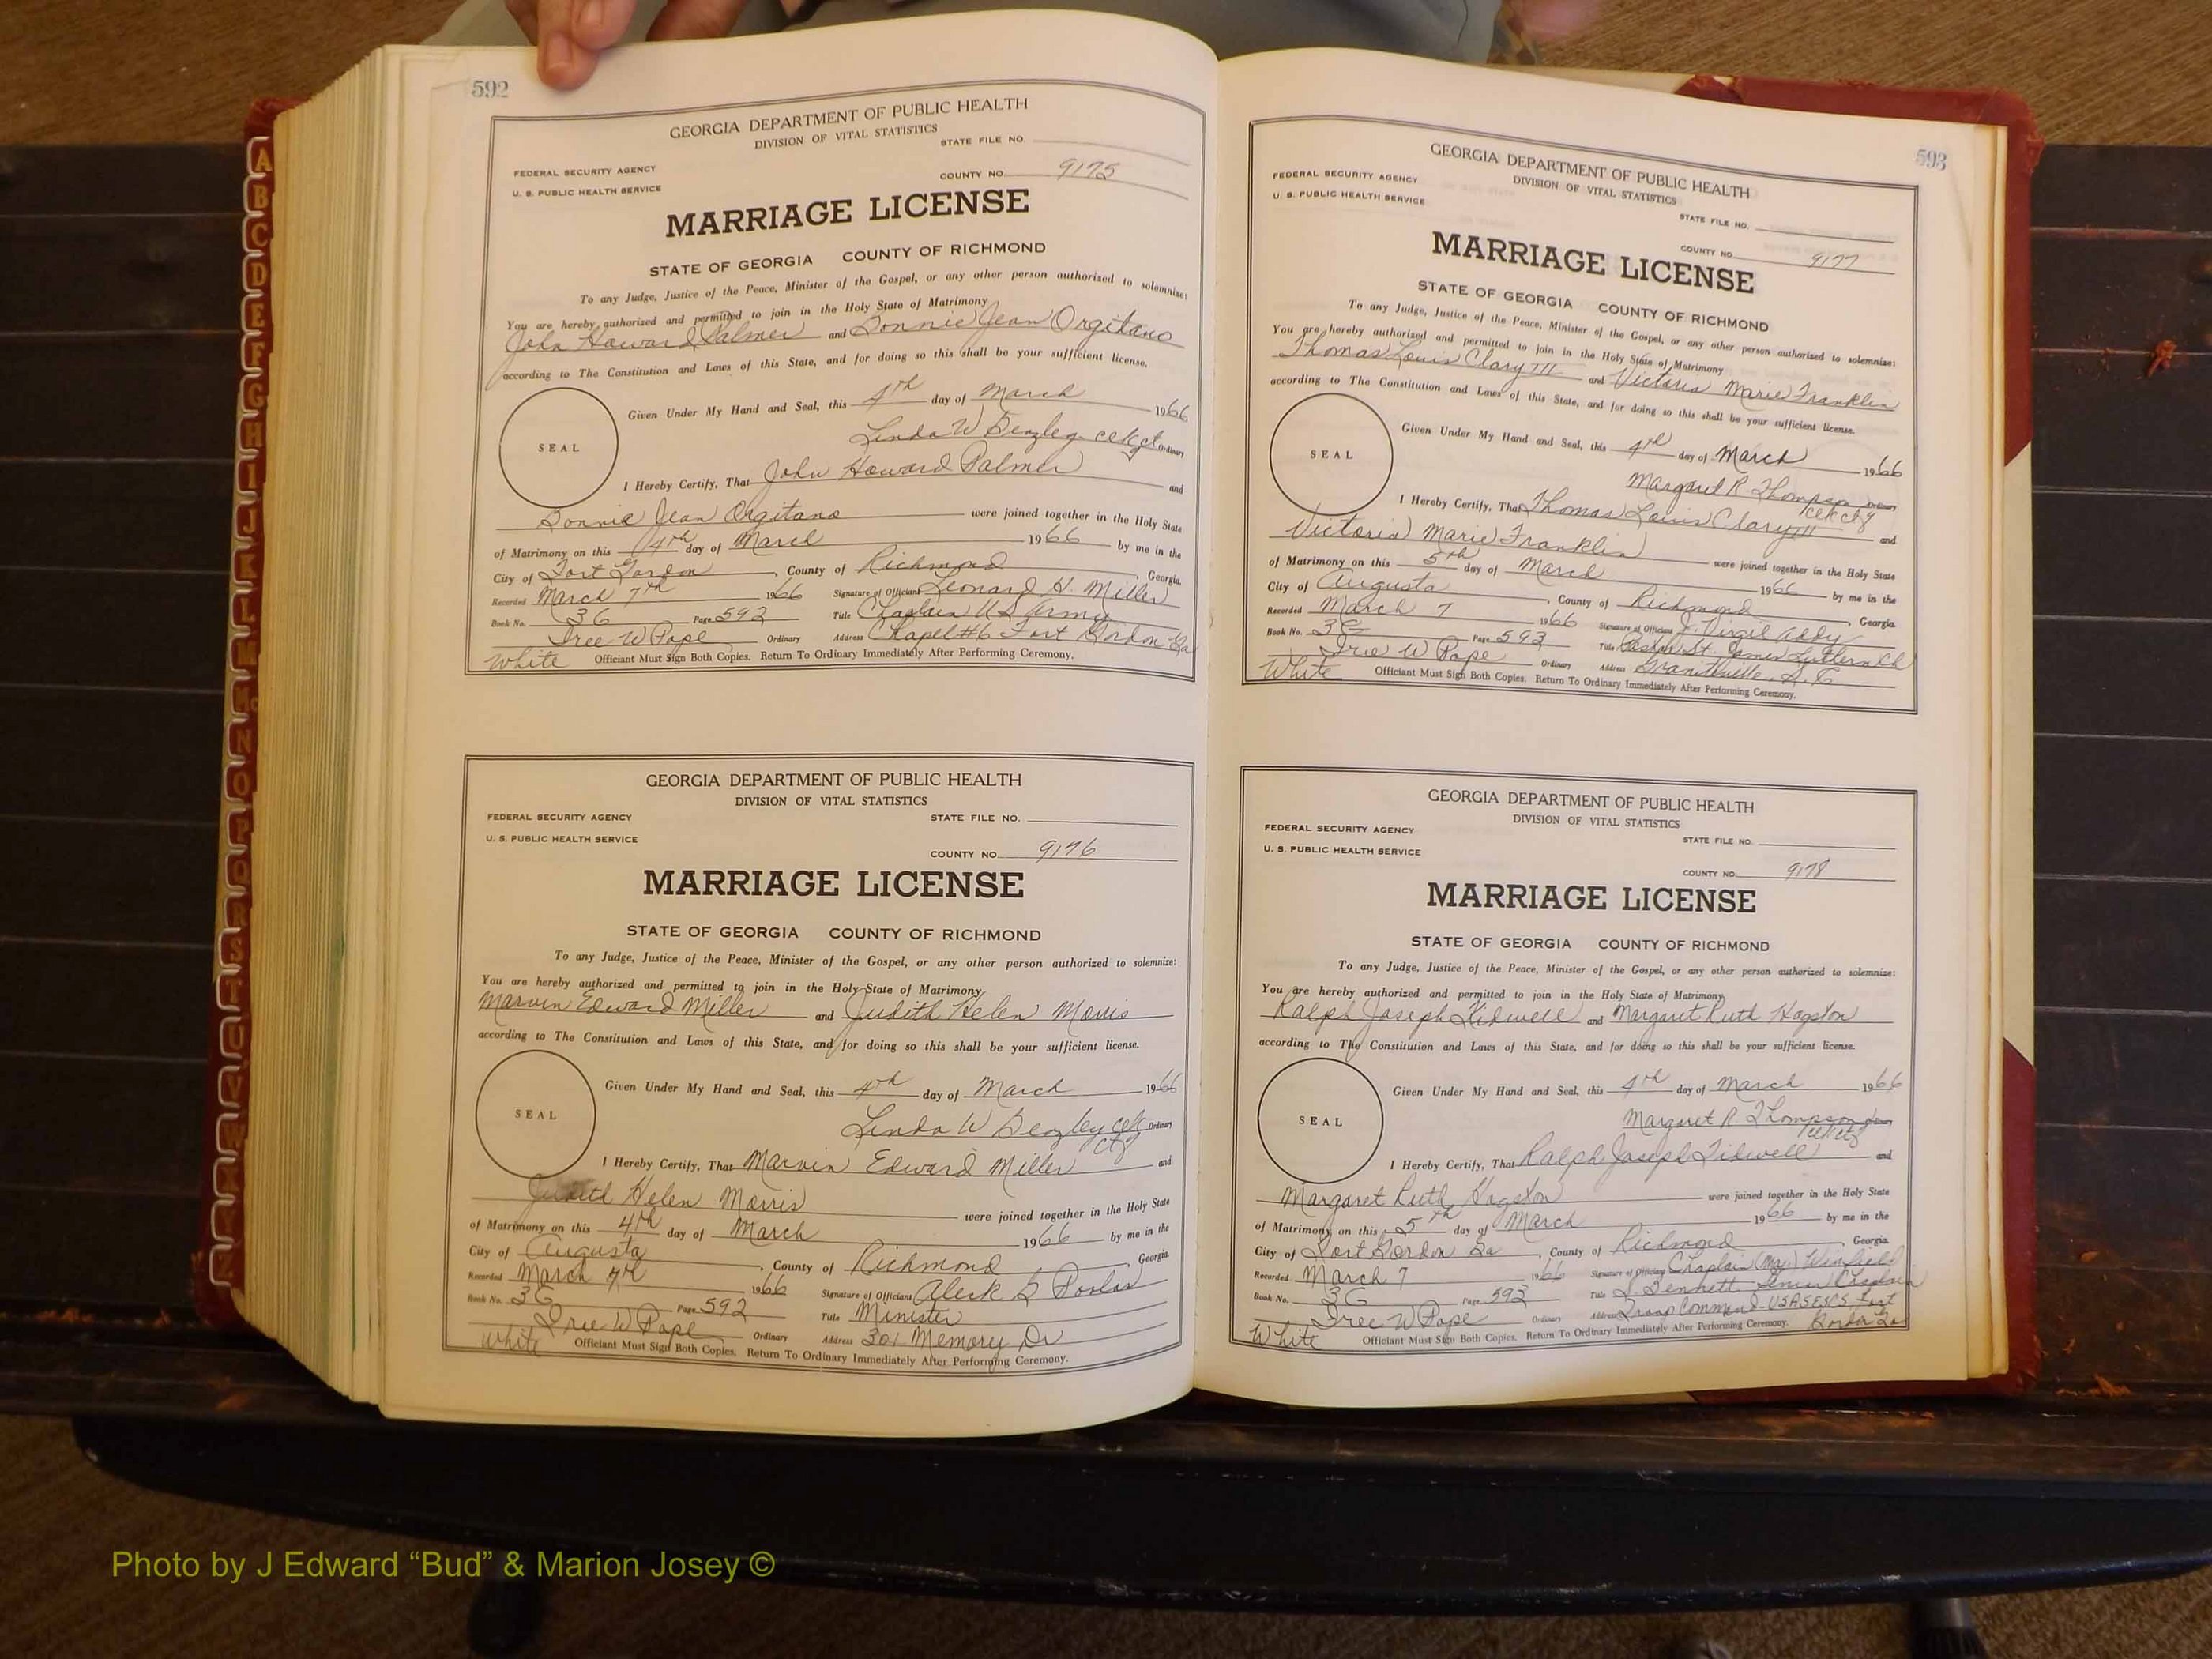 592
GEORGIA DEPARTMENT OF PUBLIC HEALTH
DIVISION OF VITAL STATISTICS
STATE FILE NO.
FEDERAL SECURITY AGENCY
COUNTY NO. 9175
U. S. PUBLIC HEALTH SERVICE
MARRIAGE LICENSE
STATE OF GEORGIA COUNTY OF RICHMOND
To any Judge, Justice of the Peace, Minister of the Gospel, or any other person authorized to solemnize:
You are hereby authorized and permitted to join in the Holy State of Matrimony
John Howard Palmer and Bonnie Jean Orgitano
according to The Constitution and Laws of this State, and for doing so this shall be your sufficient license.
Given Under My Hand and Seal, this 4th day of March 1966
SEAL
Linda W Beazley Ordinary
I Hereby Certify, That John Howard Palmer and
Bonnie Jean Orgitano were joined together in the Holy State
of Matrimony on this 4th day of March 1966 by me in the
City of Fort Gordon, County of Richmond, Georgia.
Recorded March 7th 1966 Signature of Officiant Leonard H. Miller
Book No. 3G Page 592 Title Chaplain US Army
Iree W Pope Ordinary Address Chapel #6 Fort Gordon Ga
White Officiant Must Sign Both Copies. Return To Ordinary Immediately After Performing Ceremony.
GEORGIA DEPARTMENT OF PUBLIC HEALTH
DIVISION OF VITAL STATISTICS
FEDERAL SECURITY AGENCY STATE FILE NO.
U. S. PUBLIC HEALTH SERVICE
COUNTY NO. 9176
MARRIAGE LICENSE
STATE OF GEORGIA COUNTY OF RICHMOND
To any Judge, Justice of the Peace, Minister of the Gospel, or any other person authorized to solemnize:
You are hereby authorized and permitted to join in the Holy State of Matrimony
Marvin Edward Miller and Judith Helen Morris
according to The Constitution and Laws of this State, and for doing so this shall be your sufficient license.
Given Under My Hand and Seal, this 4th day of March 1966
SEAL
Linda W Beazley Clk Ordinary
I Hereby Certify, That Marvin Edward Miller and
Judith Helen Morris were joined together in the Holy State
of Matrimony on this 4th day of March 1966 by me in the
City of Augusta, County of Richmond, Georgia.
Recorded March 7th 1966 Signature of Officiant
Book No. 3G Page 592 Title Minister
Iree W Pope Ordinary Address 301 Memory Dr
White Officiant Must Sign Both Copies. Return To Ordinary Immediately After Performing Ceremony.
593
GEORGIA DEPARTMENT OF PUBLIC HEALTH
DIVISION OF VITAL STATISTICS
FEDERAL SECURITY AGENCY
U. S. PUBLIC HEALTH SERVICE
STATE FILE NO.
COUNTY NO. 9177
MARRIAGE LICENSE
STATE OF GEORGIA COUNTY OF RICHMOND
To any Judge, Justice of the Peace, Minister of the Gospel, or any other person authorized to solemnize:
You are hereby authorized and permitted to join in the Holy State of Matrimony
Thomas Louis Clary III and Victoria Marie Franklin
according to The Constitution and Laws of this State, and for doing so this shall be your sufficient license.
Given Under My Hand and Seal, this 4th day of March 1966
SEAL
Margaret R Thompson Ordinary
I Hereby Certify, That Thomas Louis Clary III and
Victoria Marie Franklin were joined together in the Holy State
of Matrimony on this 5th day of March 1966 by me in the
City of Augusta, County of Richmond, Georgia.
Recorded March 7 1966 Signature of Officiant J. Virgil Addy
Book No. 3G Page 593 Title Pastor St. James Luthern Ch
Iree W Pope Ordinary Address Graniteville, S. C
White Officiant Must Sign Both Copies. Return To Ordinary Immediately After Performing Ceremony.
GEORGIA DEPARTMENT OF PUBLIC HEALTH
DIVISION OF VITAL STATISTICS
FEDERAL SECURITY AGENCY
STATE FILE NO.
U. S. PUBLIC HEALTH SERVICE
COUNTY NO. 9178
MARRIAGE LICENSE
STATE OF GEORGIA COUNTY OF RICHMOND
To any Judge, Justice of the Peace, Minister of the Gospel, or any other person authorized to solemnize:
You are hereby authorized and permitted to join in the Holy State of Matrimony
Ralph Joseph Tidwell and Margaret Ruth Hagston
according to The Constitution and Laws of this State, and for doing so this shall be your sufficient license.
Given Under My Hand and Seal, this 4th day of March 1966
SEAL
Margaret R Thompson
I Hereby Certify, That Ralph Joseph Tidwell and
Margaret Ruth Hagston were joined together in the Holy State
of Matrimony on this 5th day of March 1966 by me in the
City of Fort Gordon Ga, County of Richmond, Georgia.
Recorded March 7 1966 Signature of Officiant Chaplain (Maj) Winfield
Book No. 3G Page 593 Title Bennett Senior Chaplain
Iree W Pope Ordinary Address Troop Command-USASESCS Fort
White Officiant Must Sign Both Copies. Return To Ordinary Immediately After Performing Ceremony. Gordon Ga
A
B
C
D
E
F
G
H
I
J
K
L
M
Mc
N
O
P
Q
R
S
T
U
V
W
X
Y
Z
Photo by J Edward “Bud” & Marion Josey ©